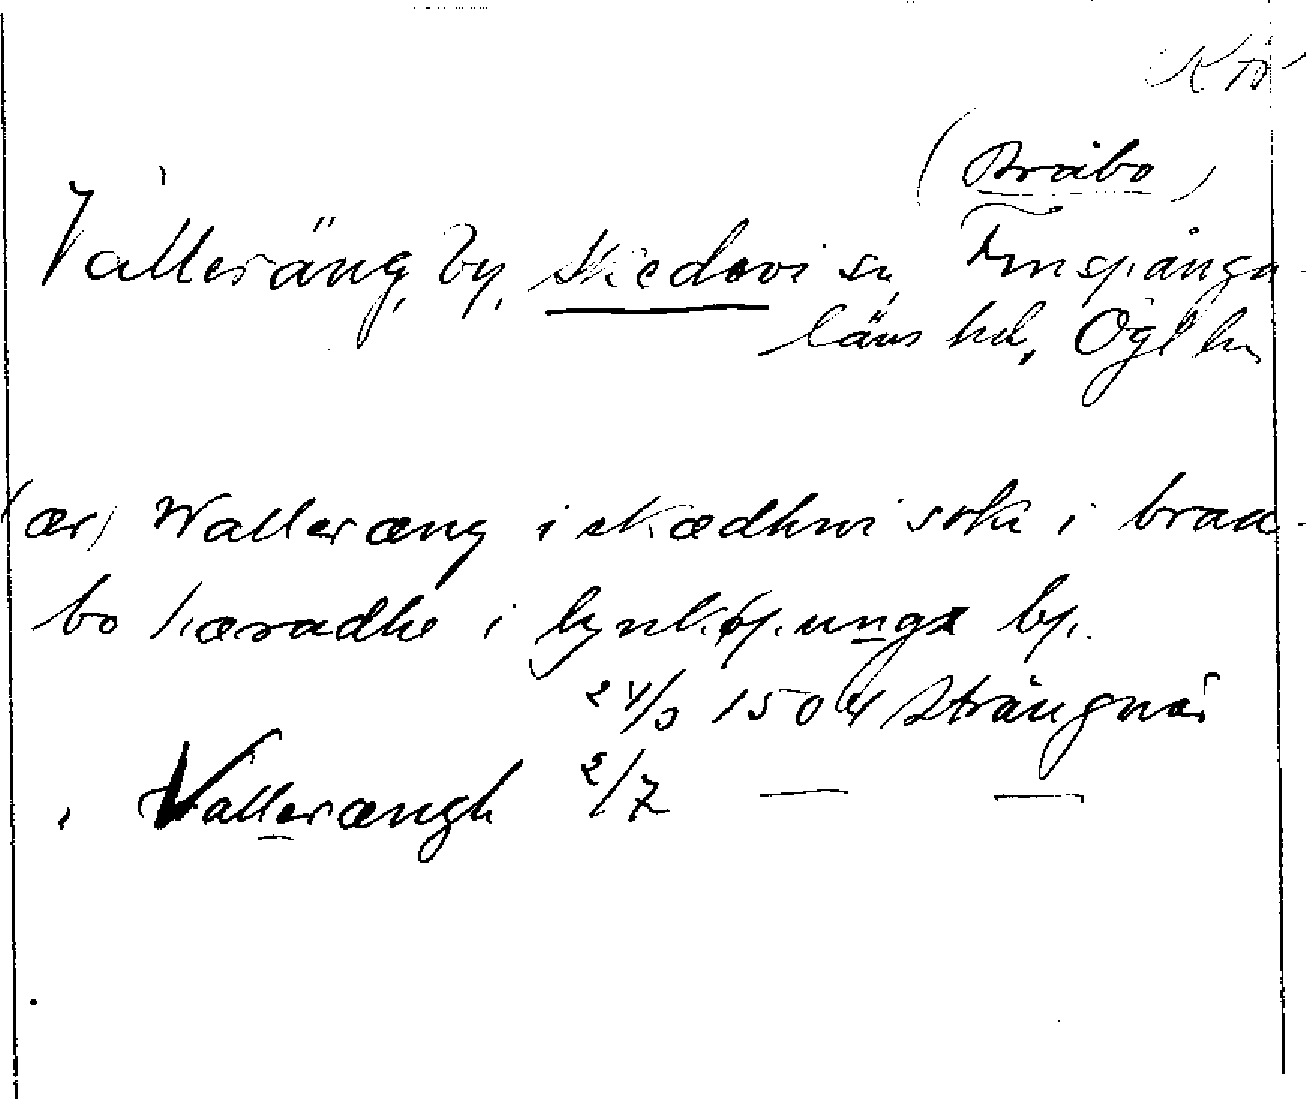 (Bråbo)
Valleräng, by, Skedevi sn, Finspånga-
läns hd, Ögl ln
(ær) Walleræng i skædhwi sokn i braa-
bo hæradhe i lynköpungx bp.
24/3 1504 Strängnäs
i Vallerængh 2/7 — —